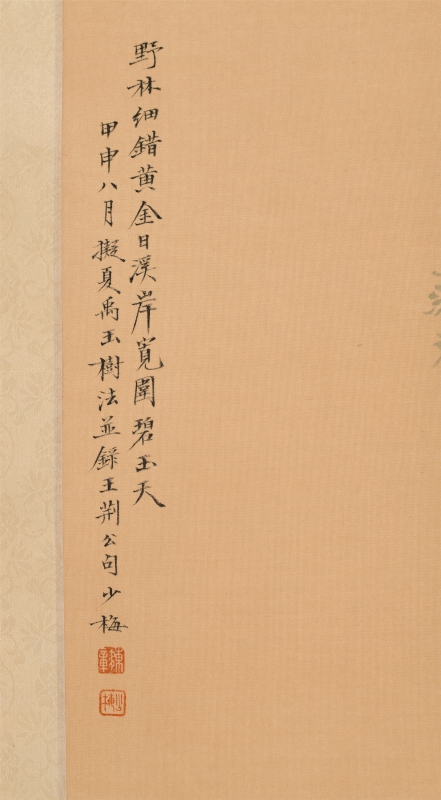 野林細錯黃金日溪岸寬圍碧玉天
甲申八月擬夏禹玉樹法並錄王荊公句少梅